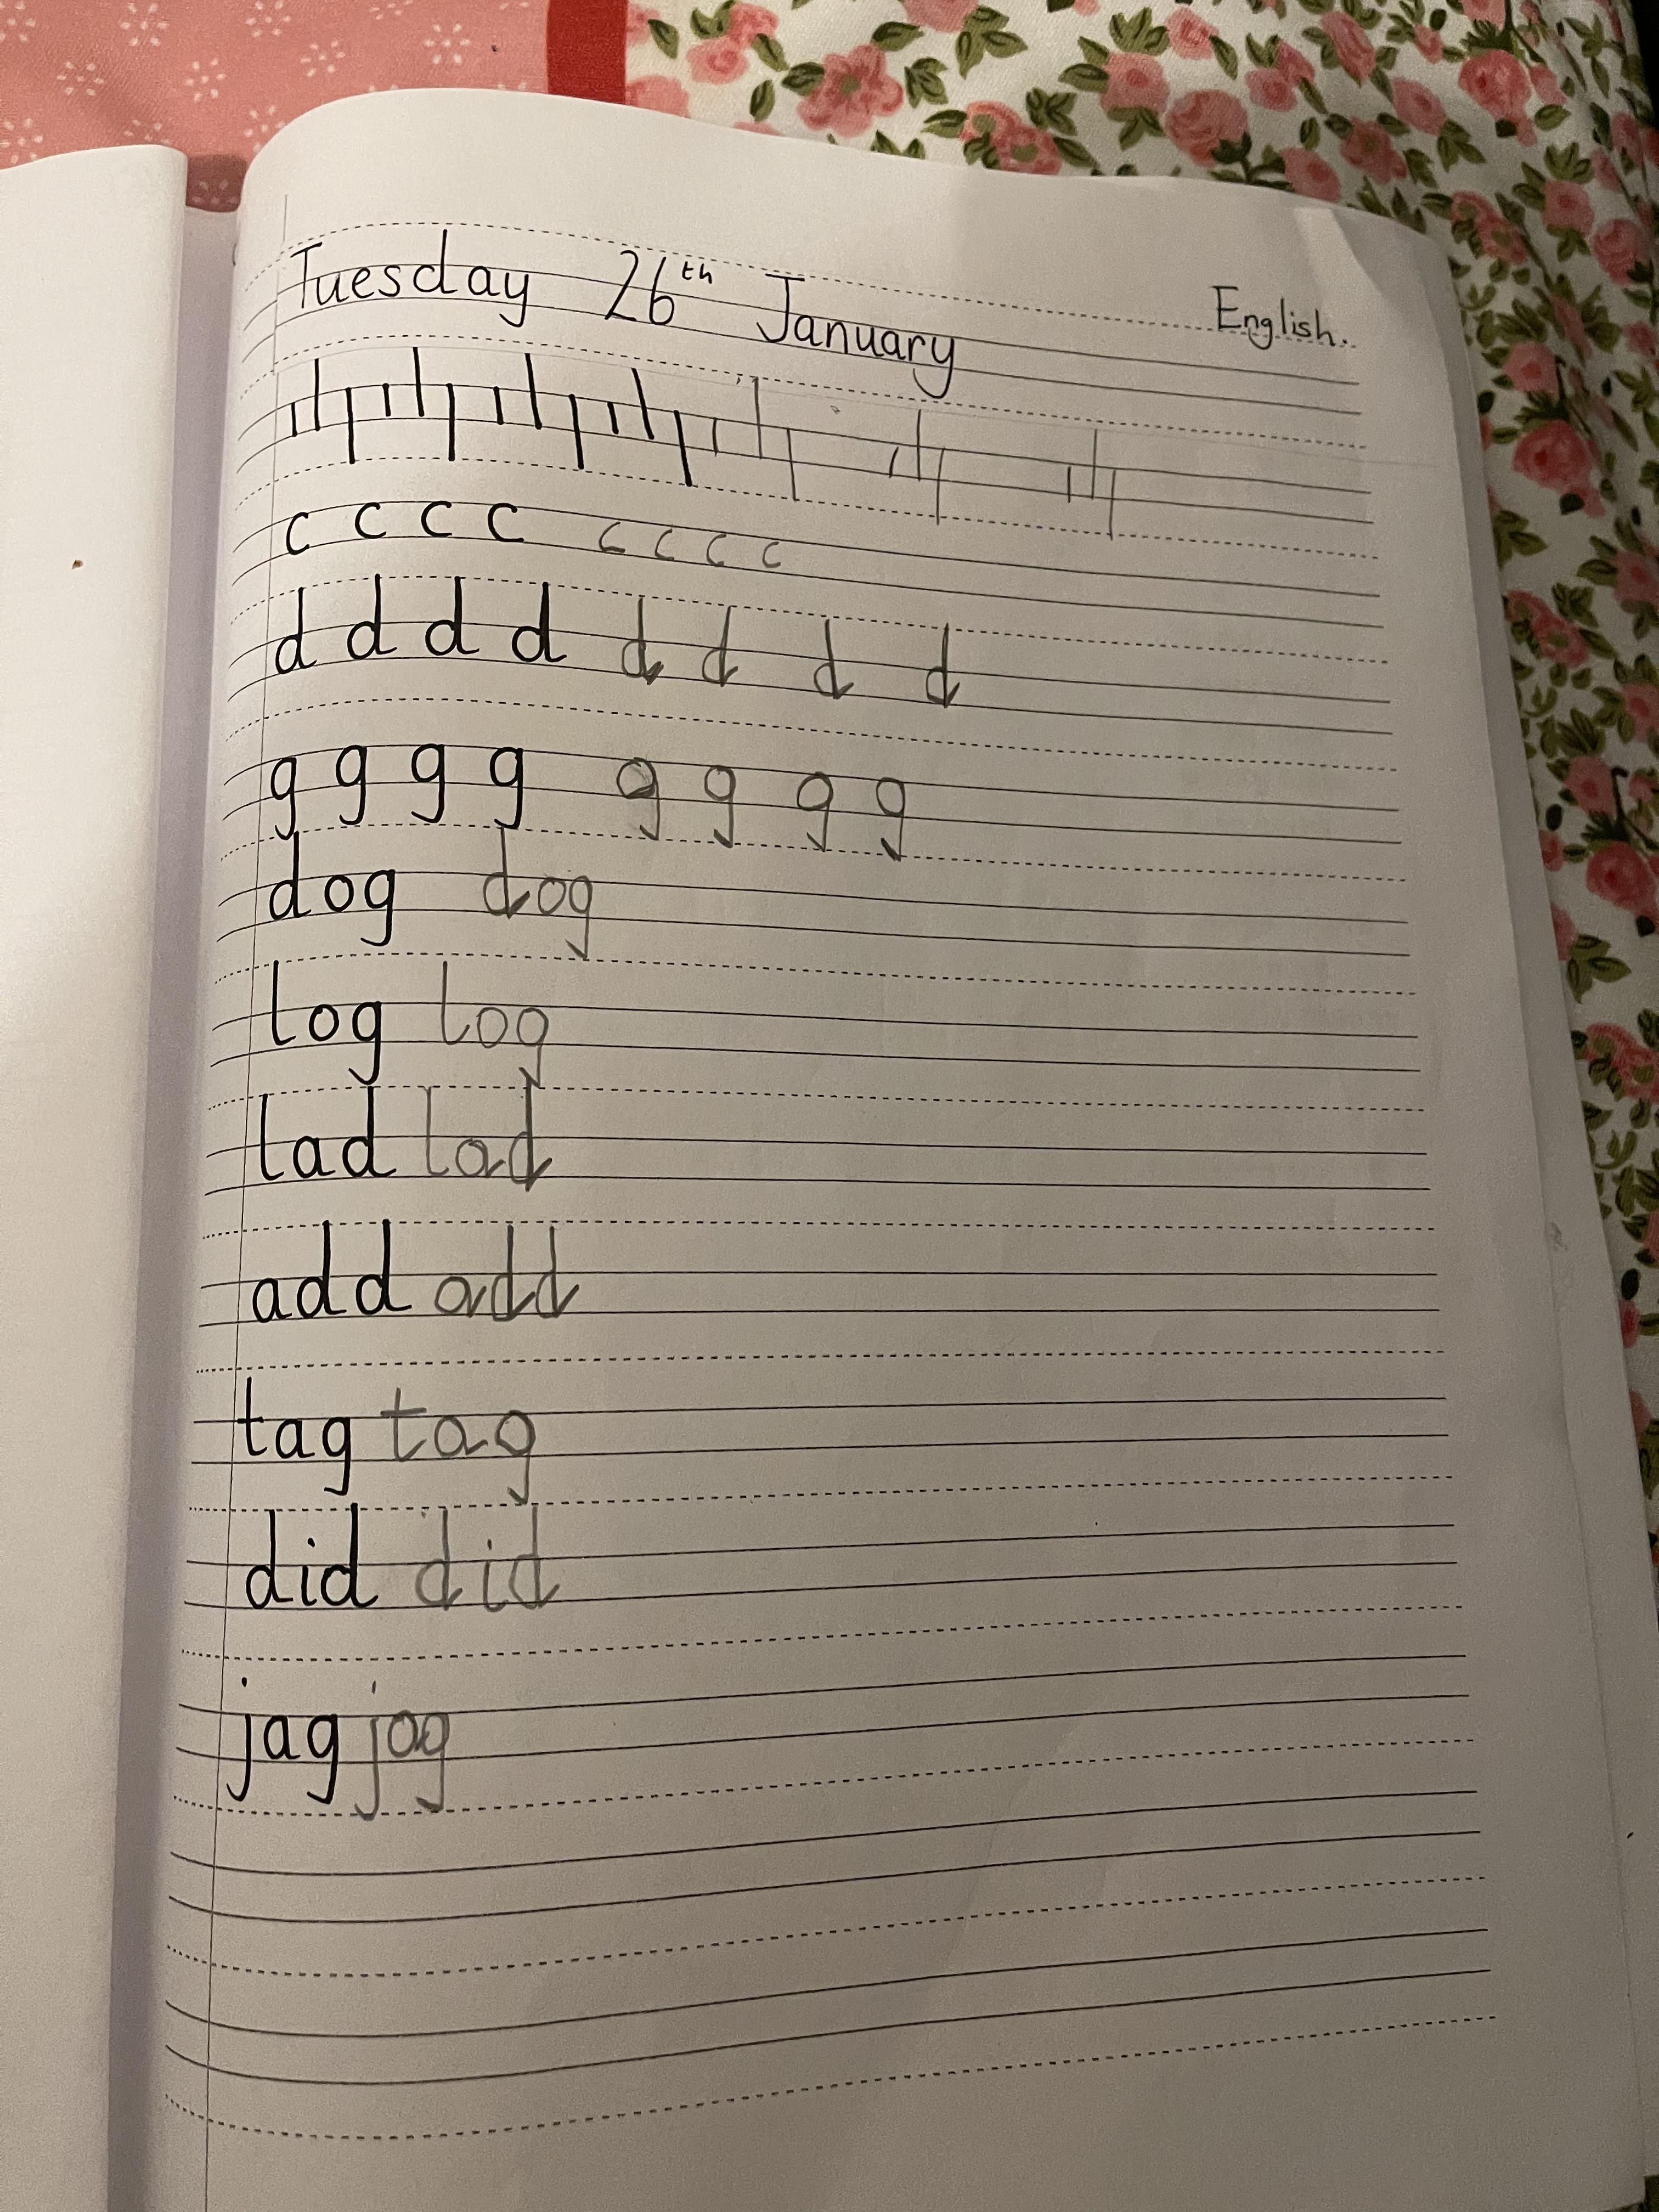 Tuesday 26th January English.
c c c c c c c c
d d d d d d d d
g g g g g g g g
dog dog
log log
lad lad
add add
tag tag
did did
jag jag